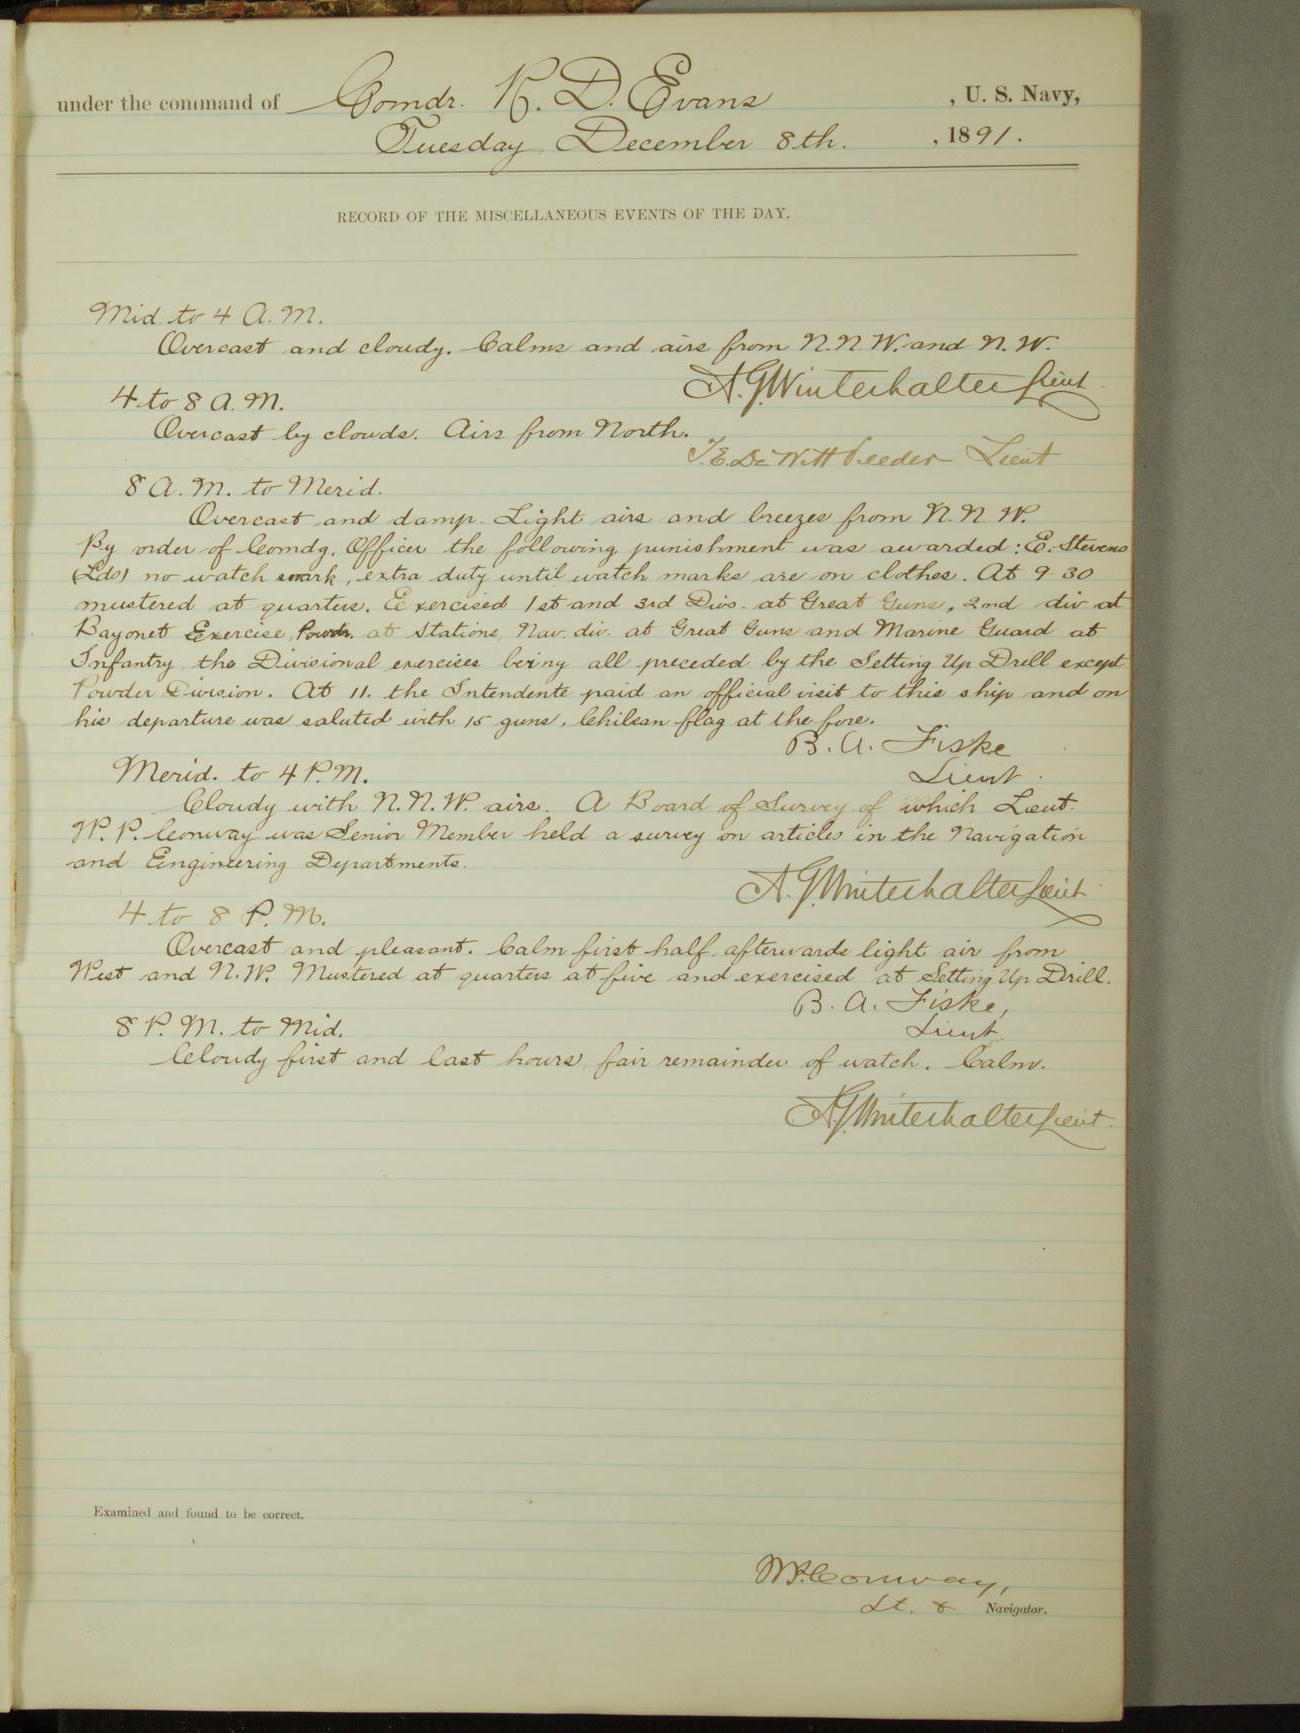 under the command of Comdr. R. D. Evans , U. S. Navy,
Tuesday, December 8th. , 1891.
RECORD OF THE MISCELLANEOUS EVENTS OF THE DAY.
Mid. to 4 A. M.
Overcast and cloudy. Calms and airs from N. N. W. and N. W.
A. G. Winterhalter Lieut.
4 to 8 A. M.
Overcast by clouds. Airs from North.
T. E. DeWitt Veeder Lieut
8 A. M. to Merid.
Overcast and damp. Light airs and breezes from N. N. W.
By order of Comdg. Officer the following punishment was awarded: E. Stevens
(Lds) no watch mark, extra duty until watch marks are on clothes. At 9 30
mustered at quarters. Exercised 1st and 3rd Divs. at Great Guns, 2nd div at
Bayonet Exercise, Powdr. at Stations, Nav. div. at Great Guns and Marine Guard at
Infantry the Divisional exercises being all preceded by the Setting Up Drill except
Powder Division. At 11. the Intendente paid an official visit to this ship and on
his departure was saluted with 15 guns, Chilean flag at the fore.
B. A. Fiske
Lieut.
Merid. to 4 P. M.
Cloudy with N. N. W. airs. A Board of Survey of which Lieut.
W. P. Conway was Senior Member held a survey on articles in the Navigation
and Engineering Departments.
A. G. Winterhalter Lieut.
4 to 8 P. M.
Overcast and pleasant. Calm first half, afterwards light air from
West and N. W. Mustered at quarters at five and exercised at Setting Up Drill.
B. A. Fiske,
Lieut.
8 P. M. to Mid.
Cloudy first and last hours, fair remainder of watch. Calm.
A. G. Winterhalter Lieut.
Examined and found to be correct.
W. P. Conway,
Lt. & Navigator.